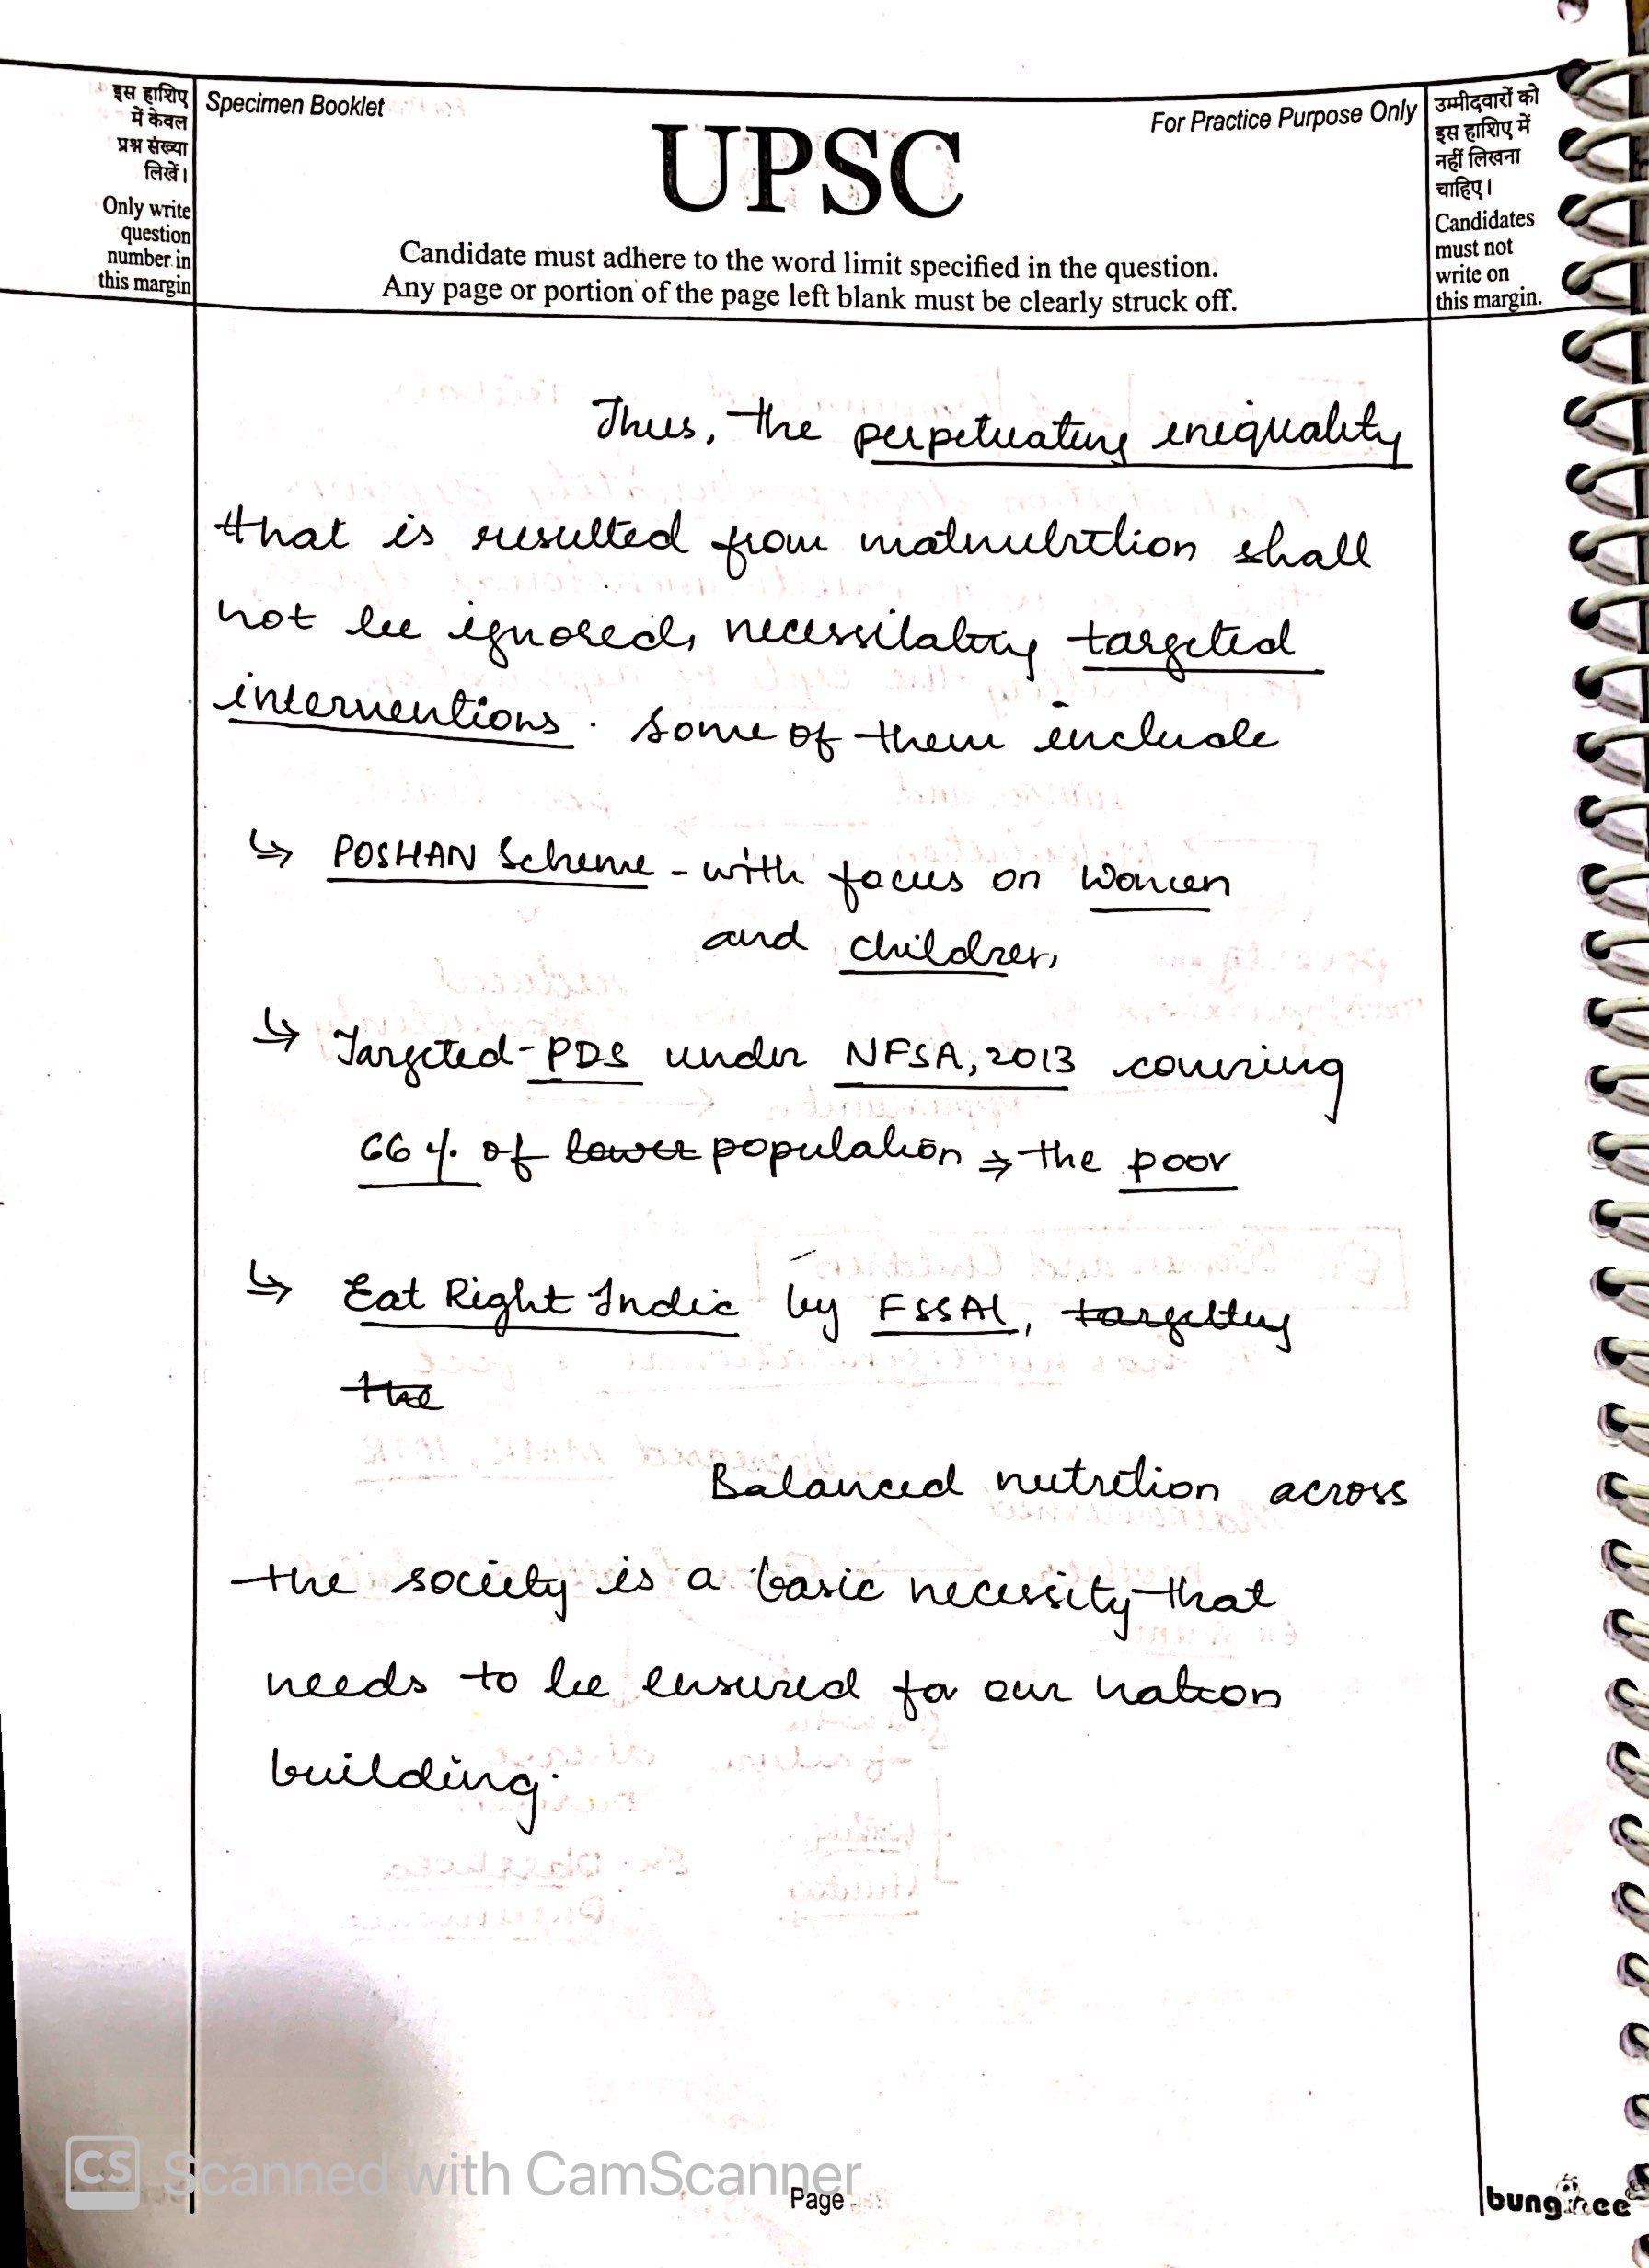 इस हाशिए
में केवल
प्रश्न संख्या
लिखें।
Only write
question
number in
this margin
Specimen Booklet
For Practice Purpose Only
UPSC
Candidate must adhere to the word limit specified in the question.
Any page or portion of the page left blank must be clearly struck off.
उम्मीदवारों को
इस हाशिए में
नहीं लिखना
चाहिए।
Candidates
must not
write on
this margin.
Thus, the perpetuating inequality
that is resulted from malnutrition shall
not be ignored, necessitating targeted
interventions. Some of them include
↳ POSHAN Scheme - with focus on Women
and children,
↳ Targeted-PDS under NFSA, 2013 covering
66% of lower population → the poor
↳ Eat Right India by FSSAI, targetting
the
Balanced nutrition across
the society is a basic necessity that
needs to be ensured for our nation
building.
CS Scanned with CamScanner
Page